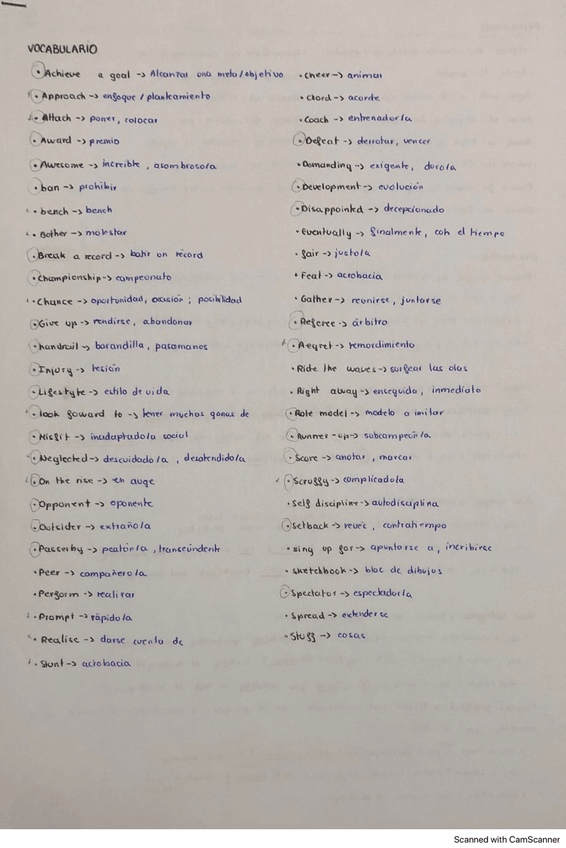 VOCABULARIO
• Achieve a goal -> Alcanzar una meta/objetivo
• Approach -> enfoque / planteamiento
• Attach -> poner, colocar
• Award -> premio
• Awesome -> increíble, asombroso/a
• ban -> prohibir
• bench -> bench
• Bother -> molestar
• Break a record -> batir un récord
• Championship -> campeonato
• Chance -> oportunidad, ocasión ; posibilidad
• Give up -> rendirse, abandonar
• handrail -> barandilla, pasamanos
• Injury -> lesión
• Lifestyle -> estilo de vida
• look foward to -> tener muchas ganas de
• Misfit -> inadaptado/a social
• Neglected -> descuidado/a, desatendido/a
• On the rise -> en auge
• Opponent -> oponente
• Outsider -> extraño/a
• Passerby -> peatón/a, transeúndente
• Peer -> compañero/a
• Perform -> realizar
• Prompt -> rápido/a
• Realise -> darse cuenta de
• Stunt -> acrobacia
• Cheer -> animar
• Chord -> acorde
• Coach -> entrenador/a
• Defeat -> derrotar, vencer
• Demanding -> exigente, duro/a
• Development -> evolución
• Disappointed -> decepcionado
• Eventually -> finalmente, con el tiempo
• fair -> justo/a
• Feat -> acrobacia
• Gather -> reunirse, juntarse
• Referee -> árbitro
• Regret -> remordimiento
• Ride the waves -> surfear las olas
• Right away -> enseguida, inmediato
• Role model -> modelo a imitar
• Runner-up -> subcampeón/a
• Score -> anotar, marcar
• Scruffy -> complicado/a
• Self discipline -> autodisciplina
• Setback -> revés, contratiempo
• sing up for -> apuntarse a, incribirse
• sketchbook -> bloc de dibujos
• Spectator -> espectador/a
• Spread -> extenderse
• Stuff -> cosas
Scanned with CamScanner